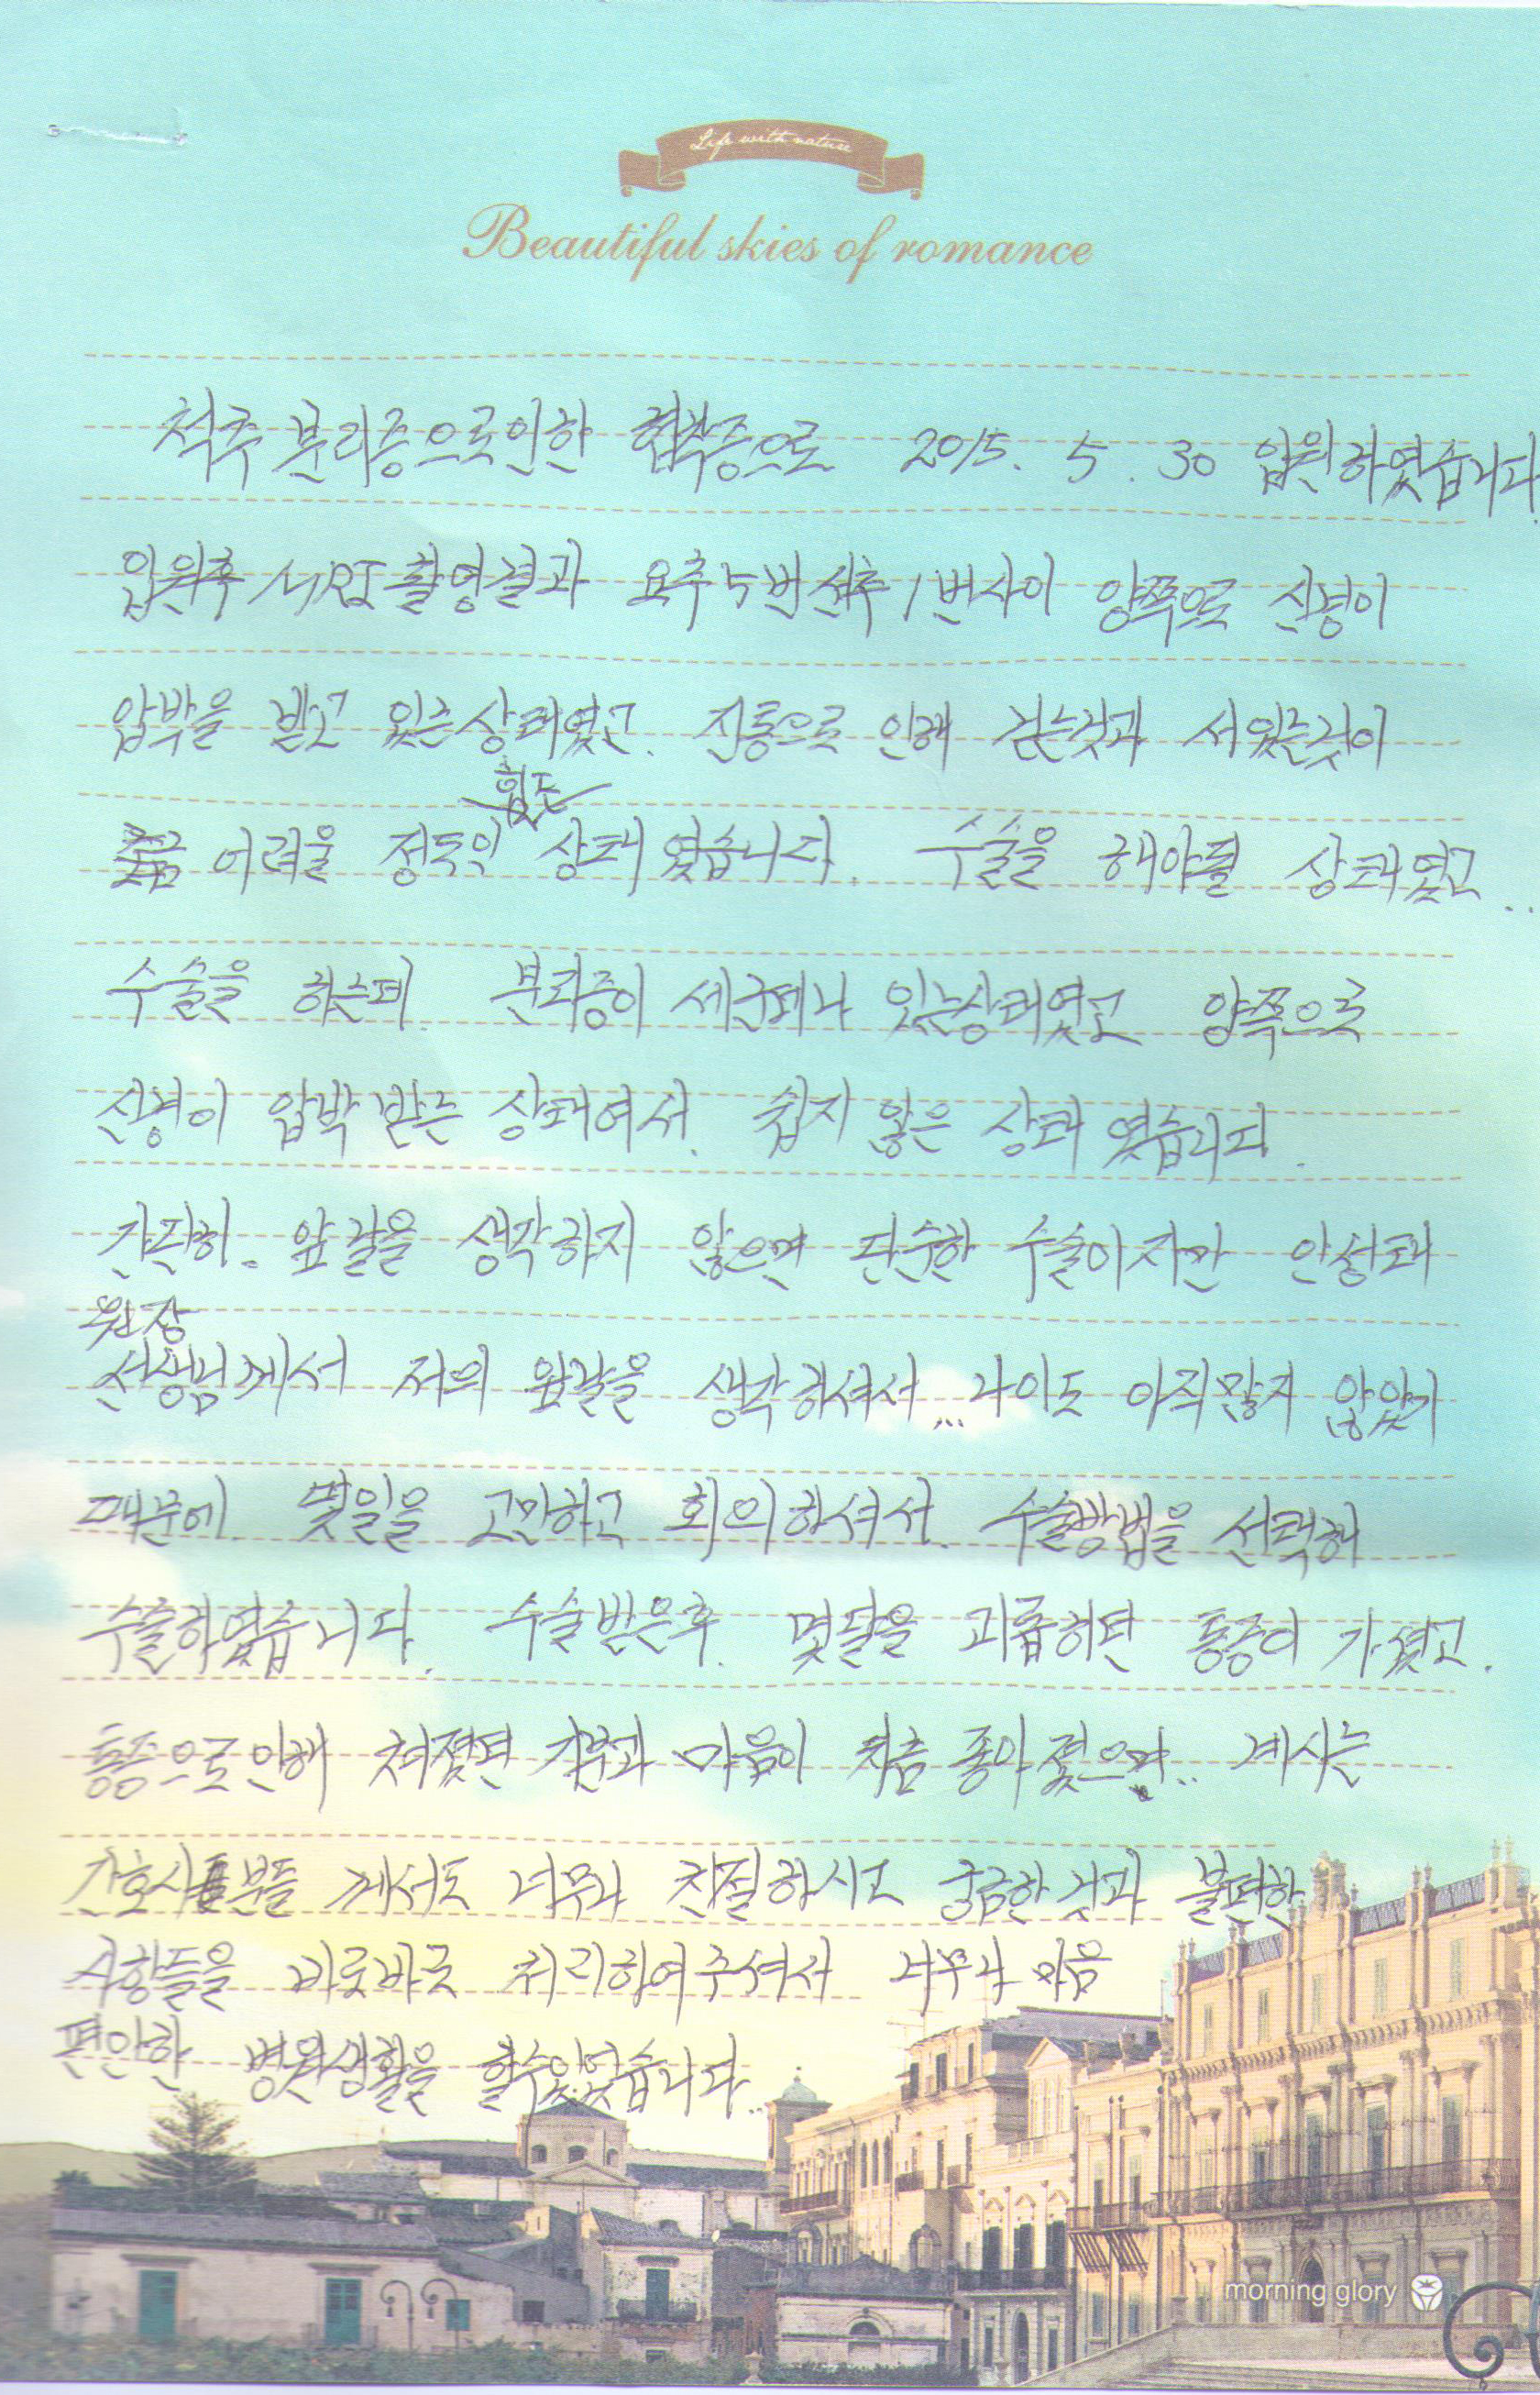 Life with nature
Beautiful skies of romance
척추 분리증으로인한 협착증으로 2015. 5. 30 입원하였습니다.
입원후 MRI 촬영결과 요추 5번 선추 1번사이 양쪽으로 신경이
압박을 받고 있는상태였고. 진통으로 인해 걷는것과 서있는것이
힘든
조금 어려울 정도의 상태 였습니다. 수술을 해야될 상태였고..
수술을 하는데. 분리증이 세군데나 있는상태였고 양쪽으로
신경이 압박 받는 상태여서. 쉽지 않은 상태 였습니다.
간단히. 앞날을 생각하지 않으면 단순한 수술이지만 안성태
원장
선생님께서 저의 앞날을 생각하셔서... 나이도 아직많지 않았기
때문에. 몇일을 고민하고 회의하셔서. 수술방법을 선택해
수술하였습니다. 수술받은후. 몇달을 괴롭히던 통증이 가셨고.
통증으로 인해 쳐졌던 기분과 마음이 차츰 좋아 졌으며.. 계시는
간호사분들 께서도 너무나 친절하시고 궁금한 것과 불편한
사항들을 바로바로 처리하여주셔서 너무나 마음
편안한 병원생활을 할수있었습니다..
morning glory